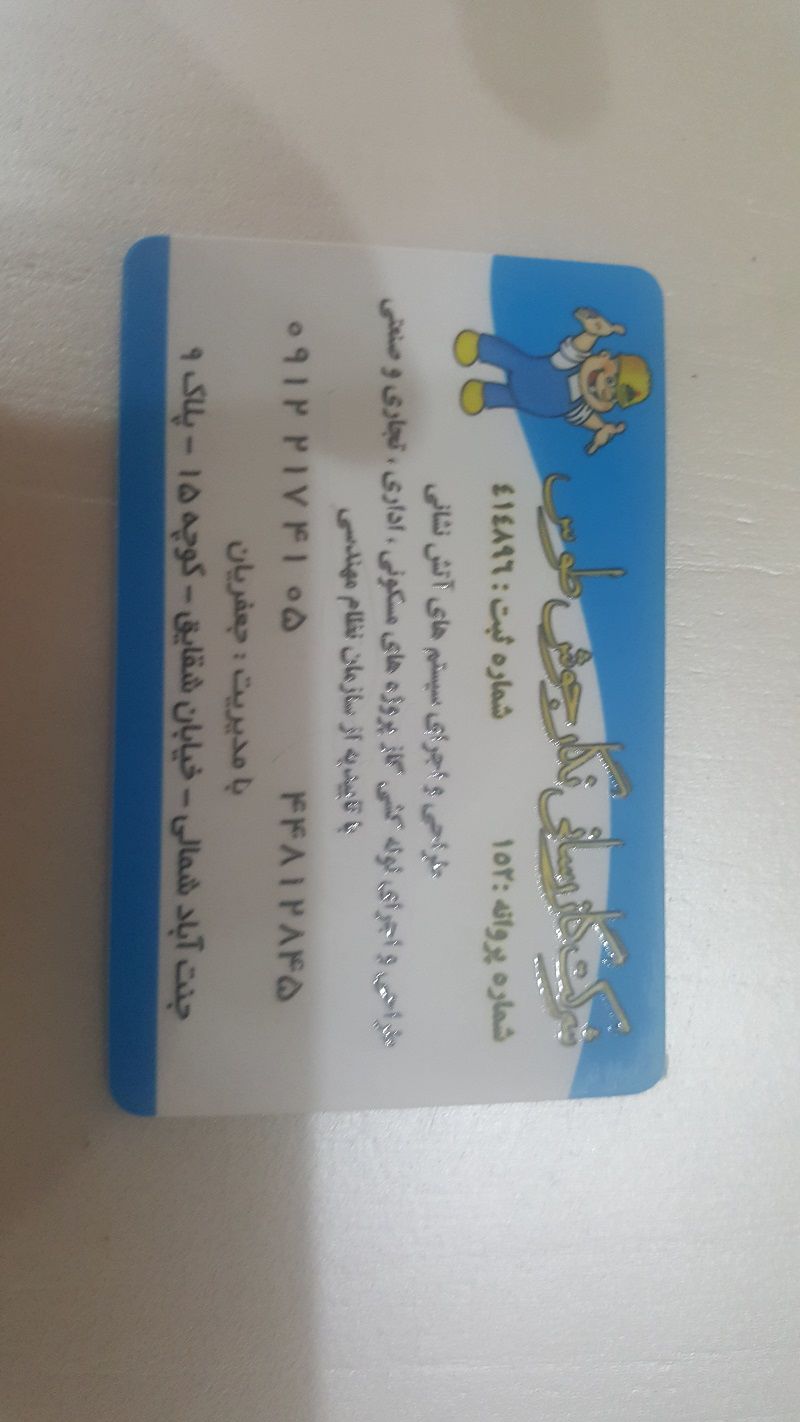 شرکت گازرسانی نگار جوش طوس
شماره پروانه : ۱۵۲ شماره ثبت : ٤١٤٨٩٦
طراحی و اجرای سیستم های آتش نشانی
طراحی و اجرای لوله کشی گاز پروژه های مسکونی ، اداری ، تجاری و صنعتی
با تاییدیه از سازمان نظام مهندسی
۴۴۸۱۲۸۴۵ ۰۹۱۲ ۲۱۷۴۱۰۵
با مدیریت : جعفریان
جنت آباد شمالی - خیابان شقایق - کوچه ۱۵ - پلاک ۹